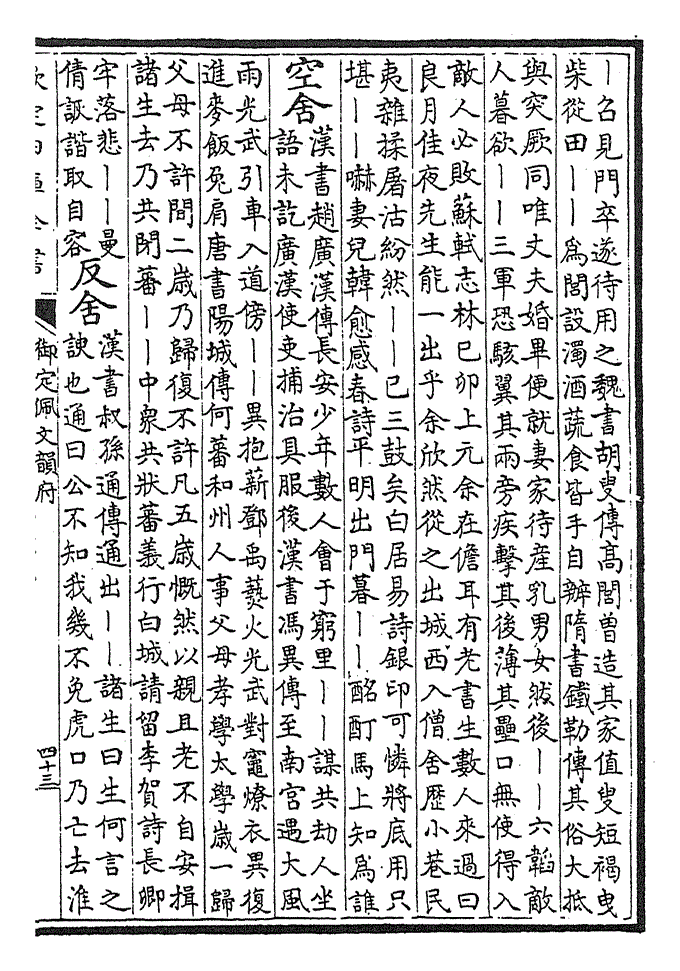 丨召見門卒遂待用之魏書胡叟傳高閭曾造其家值叟短褐曳
柴從田丨丨為閭設濁酒蔬食皆手自辦隋書鐵勒傳其俗大抵
與突厥同唯丈夫婚畢便就妻家待産乳男女然後丨丨六韜敵
人暮欲丨丨三軍恐駭翼其兩旁疾擊其後薄其壘口無使得入
敵人必敗蘇軾志林已卯上元余在儋耳有老書生數人來過曰
良月佳夜先生能一出乎余欣然從之出城西入僧舍歴小巷民
夷雜揉屠沽紛然丨丨已三鼓矣白居易詩銀印可憐將底用只
堪丨丨嚇妻兒韓愈感春詩平明出門暮丨丨酩酊馬上知為誰
空舍
漢書趙廣漢傳長安少年數人會于窮里丨丨謀共劫人坐
語未訖廣漢使吏捕治具服後漢書馮異傳至南宫遇大風
雨光武引車入道傍丨丨異抱薪鄧禹爇火光武對竈燎衣異復
進麥飯兔肩唐書陽城傳何蕃和州人事父母孝學太學歲一歸
父母不許間二歲乃歸復不許凡五歲慨然以親且老不自安揖
諸生去乃共閉蕃丨丨中衆共狀蕃義行白城請留李賀詩長卿
牢落悲丨丨曼
倩詼諧取自容
反舍
漢書叔孫通傳通出丨丨諸生曰生何言之
諛也通曰公不知我幾不免虎口乃亡去淮
欽定四庫全書
御定佩文韻府
四十三